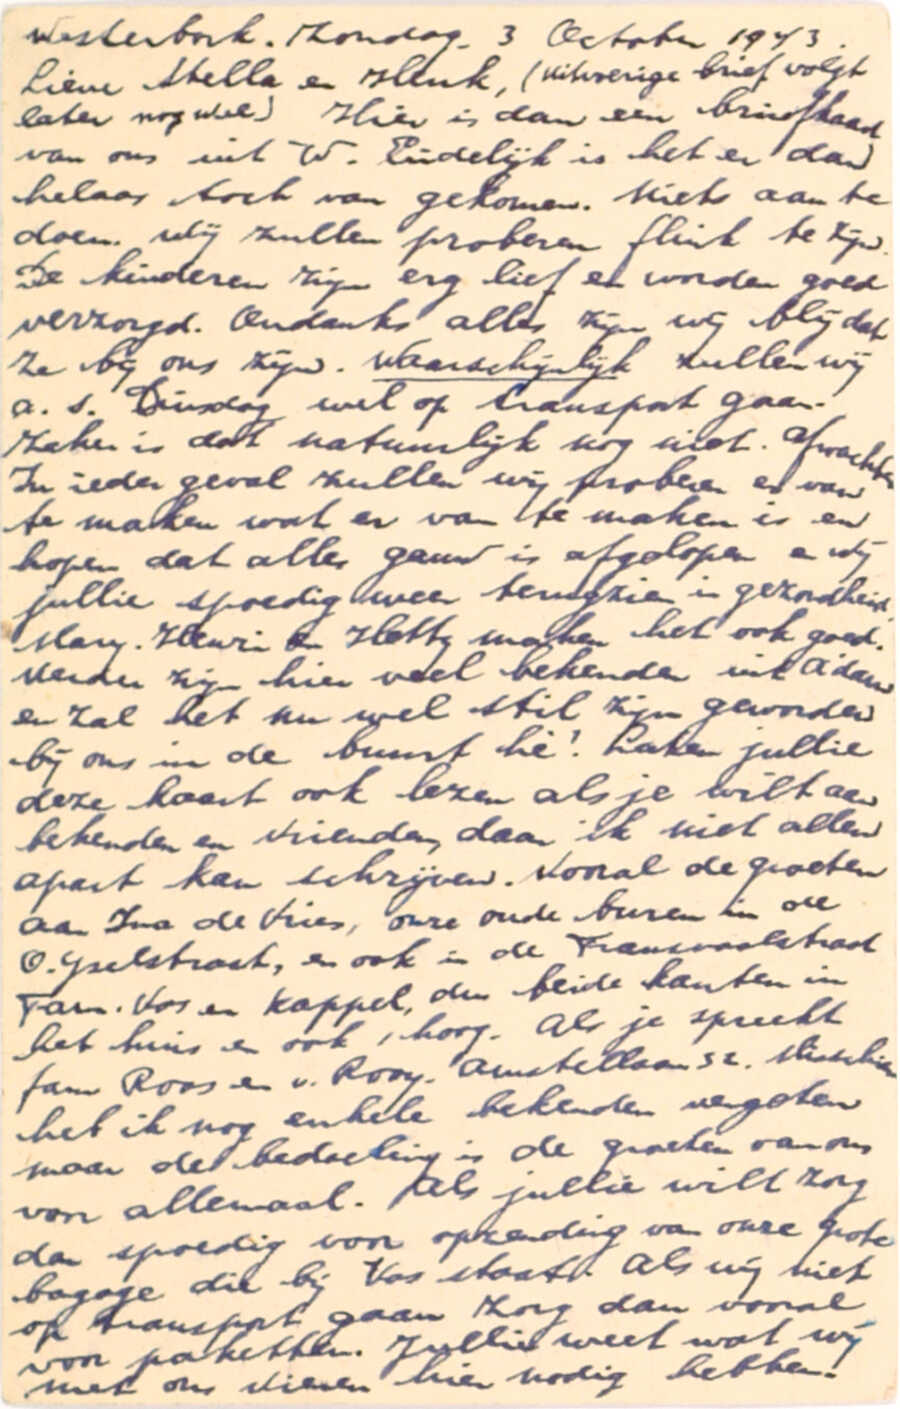 Westerbork. Zondag. 3 October 1943.
Lieve Stella en Henk, (uitvoerige brief volgt
later nog wel) Hier is dan een briefkaart
van ons uit W. Eindelijk is het er dan
helaas toch van gekomen. Niets aan te
doen. Wij zullen proberen flink te zijn.
De kinderen zijn erg lief en worden goed
verzorgd. Ondanks alles zijn wij blij dat
ze bij ons zijn. Waarschijnlijk zullen wij
a.s. Dinsdag wel op transport gaan.
Zeker is dat natuurlijk nog niet. Afwachten
In ieder geval zullen wij proberen er van
te maken wat er van te maken is en
hopen dat alles gauw is afgelopen en wij
jullie spoedig weer terugzien in gezondheid.
Mary. Henri en Hetty maken het ook goed.
Verder zijn hier veel bekenden uit A'dam
en zal het nu wel stil zijn geworden
bij ons in de buurt hè! Laten jullie
deze kaart ook lezen als je wilt aan
bekenden en vrienden, daar ik niet allen
apart kan schrijven. Vooral de groeten
aan Ina de Vries, onze oude buren in de
O. Yselstraat, en ook in de Transvaalstraat
Fam. Vos en Kappel, den beide kanten in
het huis en ook 1 hoog. Als je spreekt
fam Roos en v. Rooy. Amstellaan 32. Misschien
heb ik nog enkele bekenden vergeten
maar de bedoeling is de groeten van ons
voor allemaal. Als jullie wilt zorg
dan spoedig voor opzending van onze grote
bagage die bij Vos staat. Als wij niet
op transport gaan zorg dan vooral
voor paketten. Jullie weet wat wij
met ons vieren hier nodig hebben!